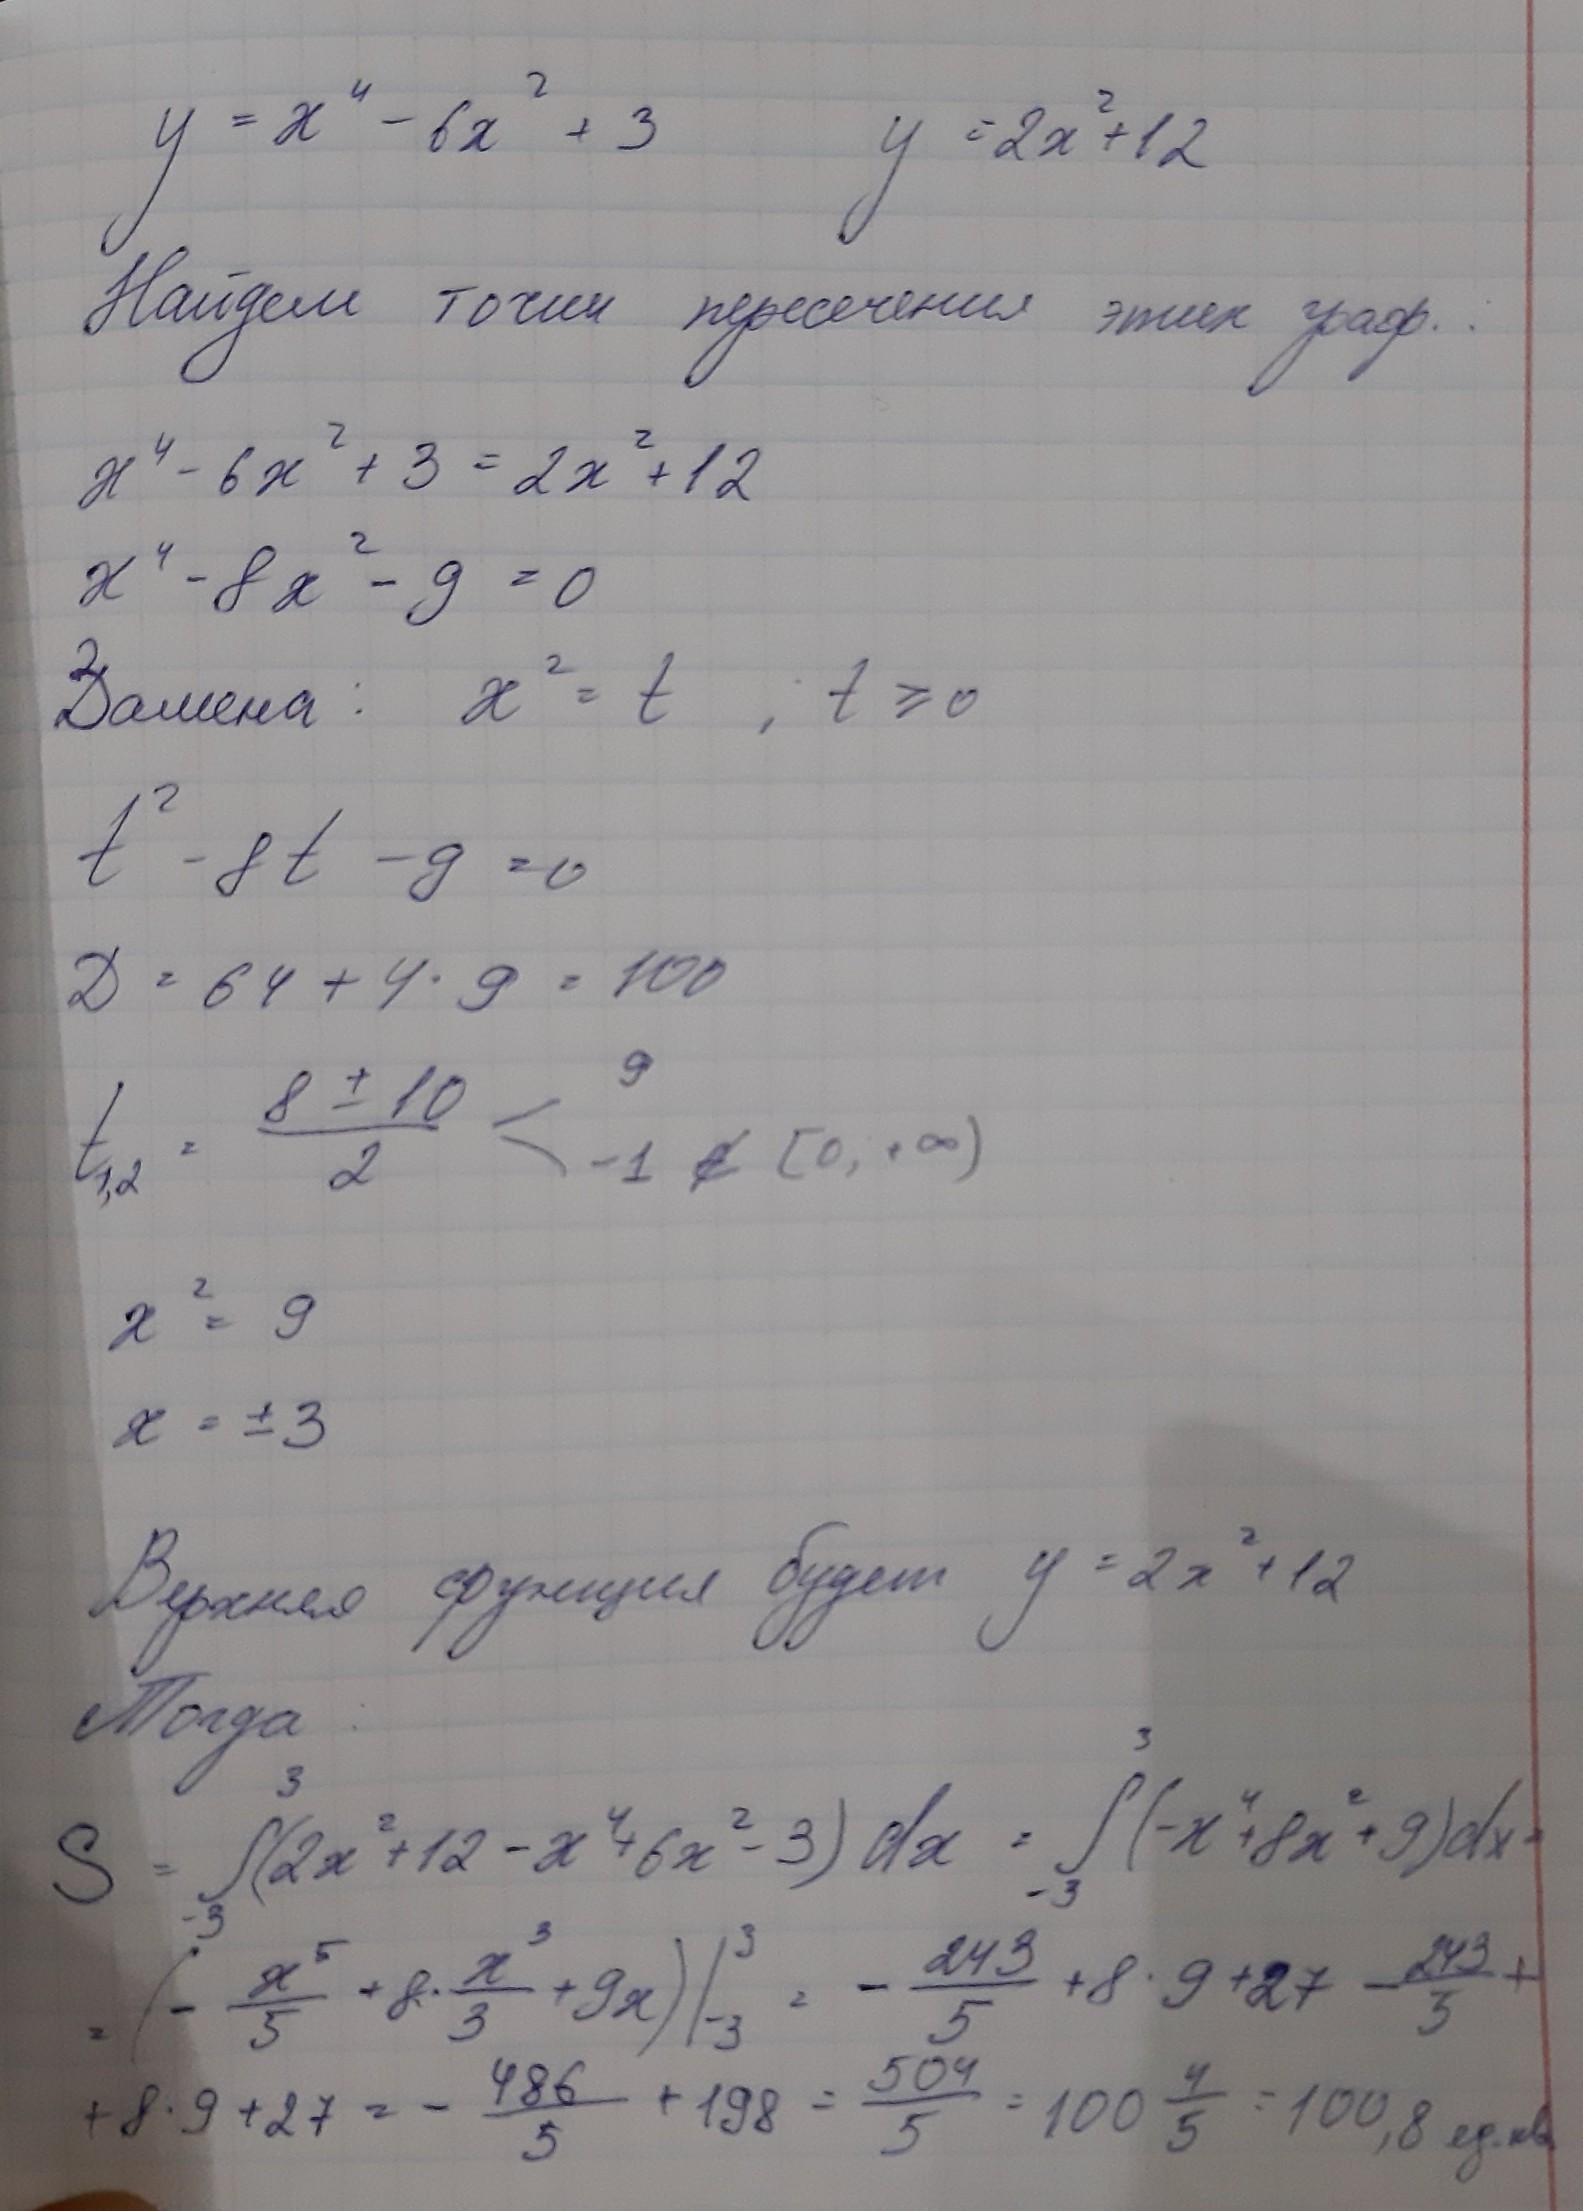 y = x⁴ - 6x² + 3 y = 2x² + 12
Найдем точки пересечения этих граф. :
x⁴ - 6x² + 3 = 2x² + 12
x⁴ - 8x² - 9 = 0
Замена : x² = t ; t ≥ 0
t² - 8t - 9 = 0
D = 64 + 4 · 9 = 100
t₁,₂ = (8 ± 10)/2 < 9 -1 ∉ [0; +∞)
x² = 9
x = ±3
Верхняя функция будет y = 2x² + 12
Тогда :
S = ∫₋₃³ (2x² + 12 - x⁴ + 6x² - 3) dx = ∫₋₃³ (-x⁴ + 8x² + 9) dx =
= (- x⁵/5 + 8 · x³/3 + 9x) |₋₃³ = - 243/5 + 8 · 9 + 27 - 243/5 +
+ 8 · 9 + 27 = - 486/5 + 198 = 504/5 = 100 4/5 = 100,8 ед. кв